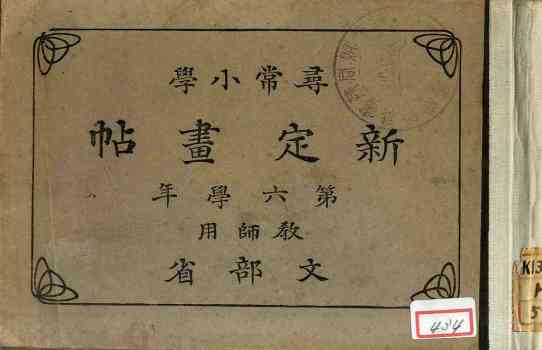 尋常小學
新定畫帖
第六學年
教師用
文部省
434
K13